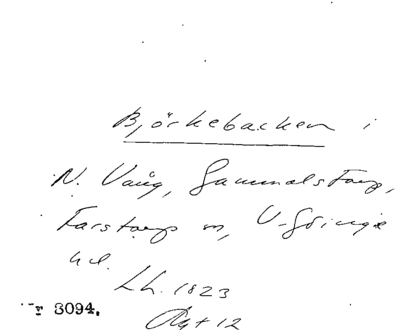 Björkebacken i
N. Vång, Gammalstorp,
Farstorp m, V-Göinge
hd.
Lh. 1823
+ 12
r 3094.